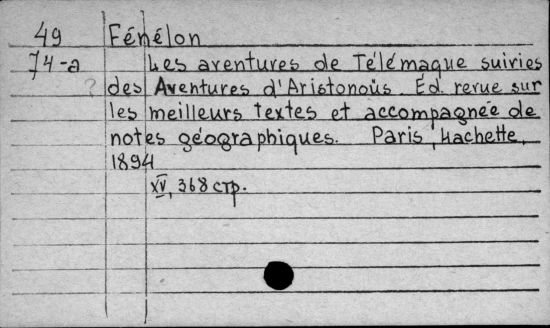 49 Fénélon
74-a Les aventures de Télémaque suivies
? des Aventures d'Aristonoüs. Éd. revue sur
les meilleurs textes et accompagnée de
notes géographiques. Paris, Hachette,
1894
XV, 368 стр.